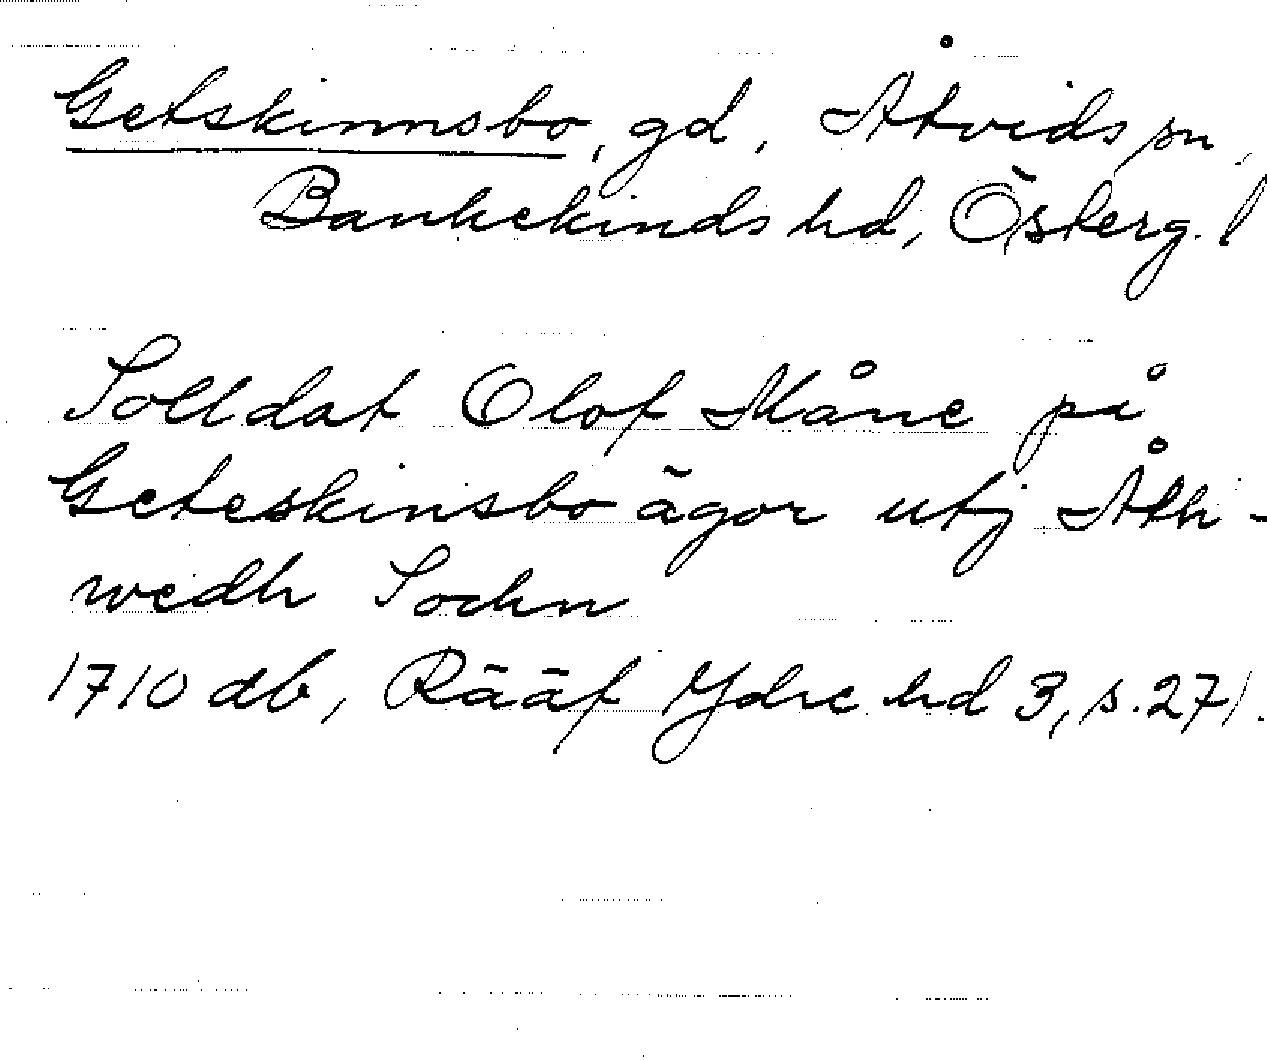 Getskinnsbo, gd, Åtvids sn,
Bankekinds hd, Österg. l
Solldat Olof Måne på
Geteskinsbo ägor utj Åth-
wedh Sochn
1710 db, Rääf Ydre hd 3, s. 271.